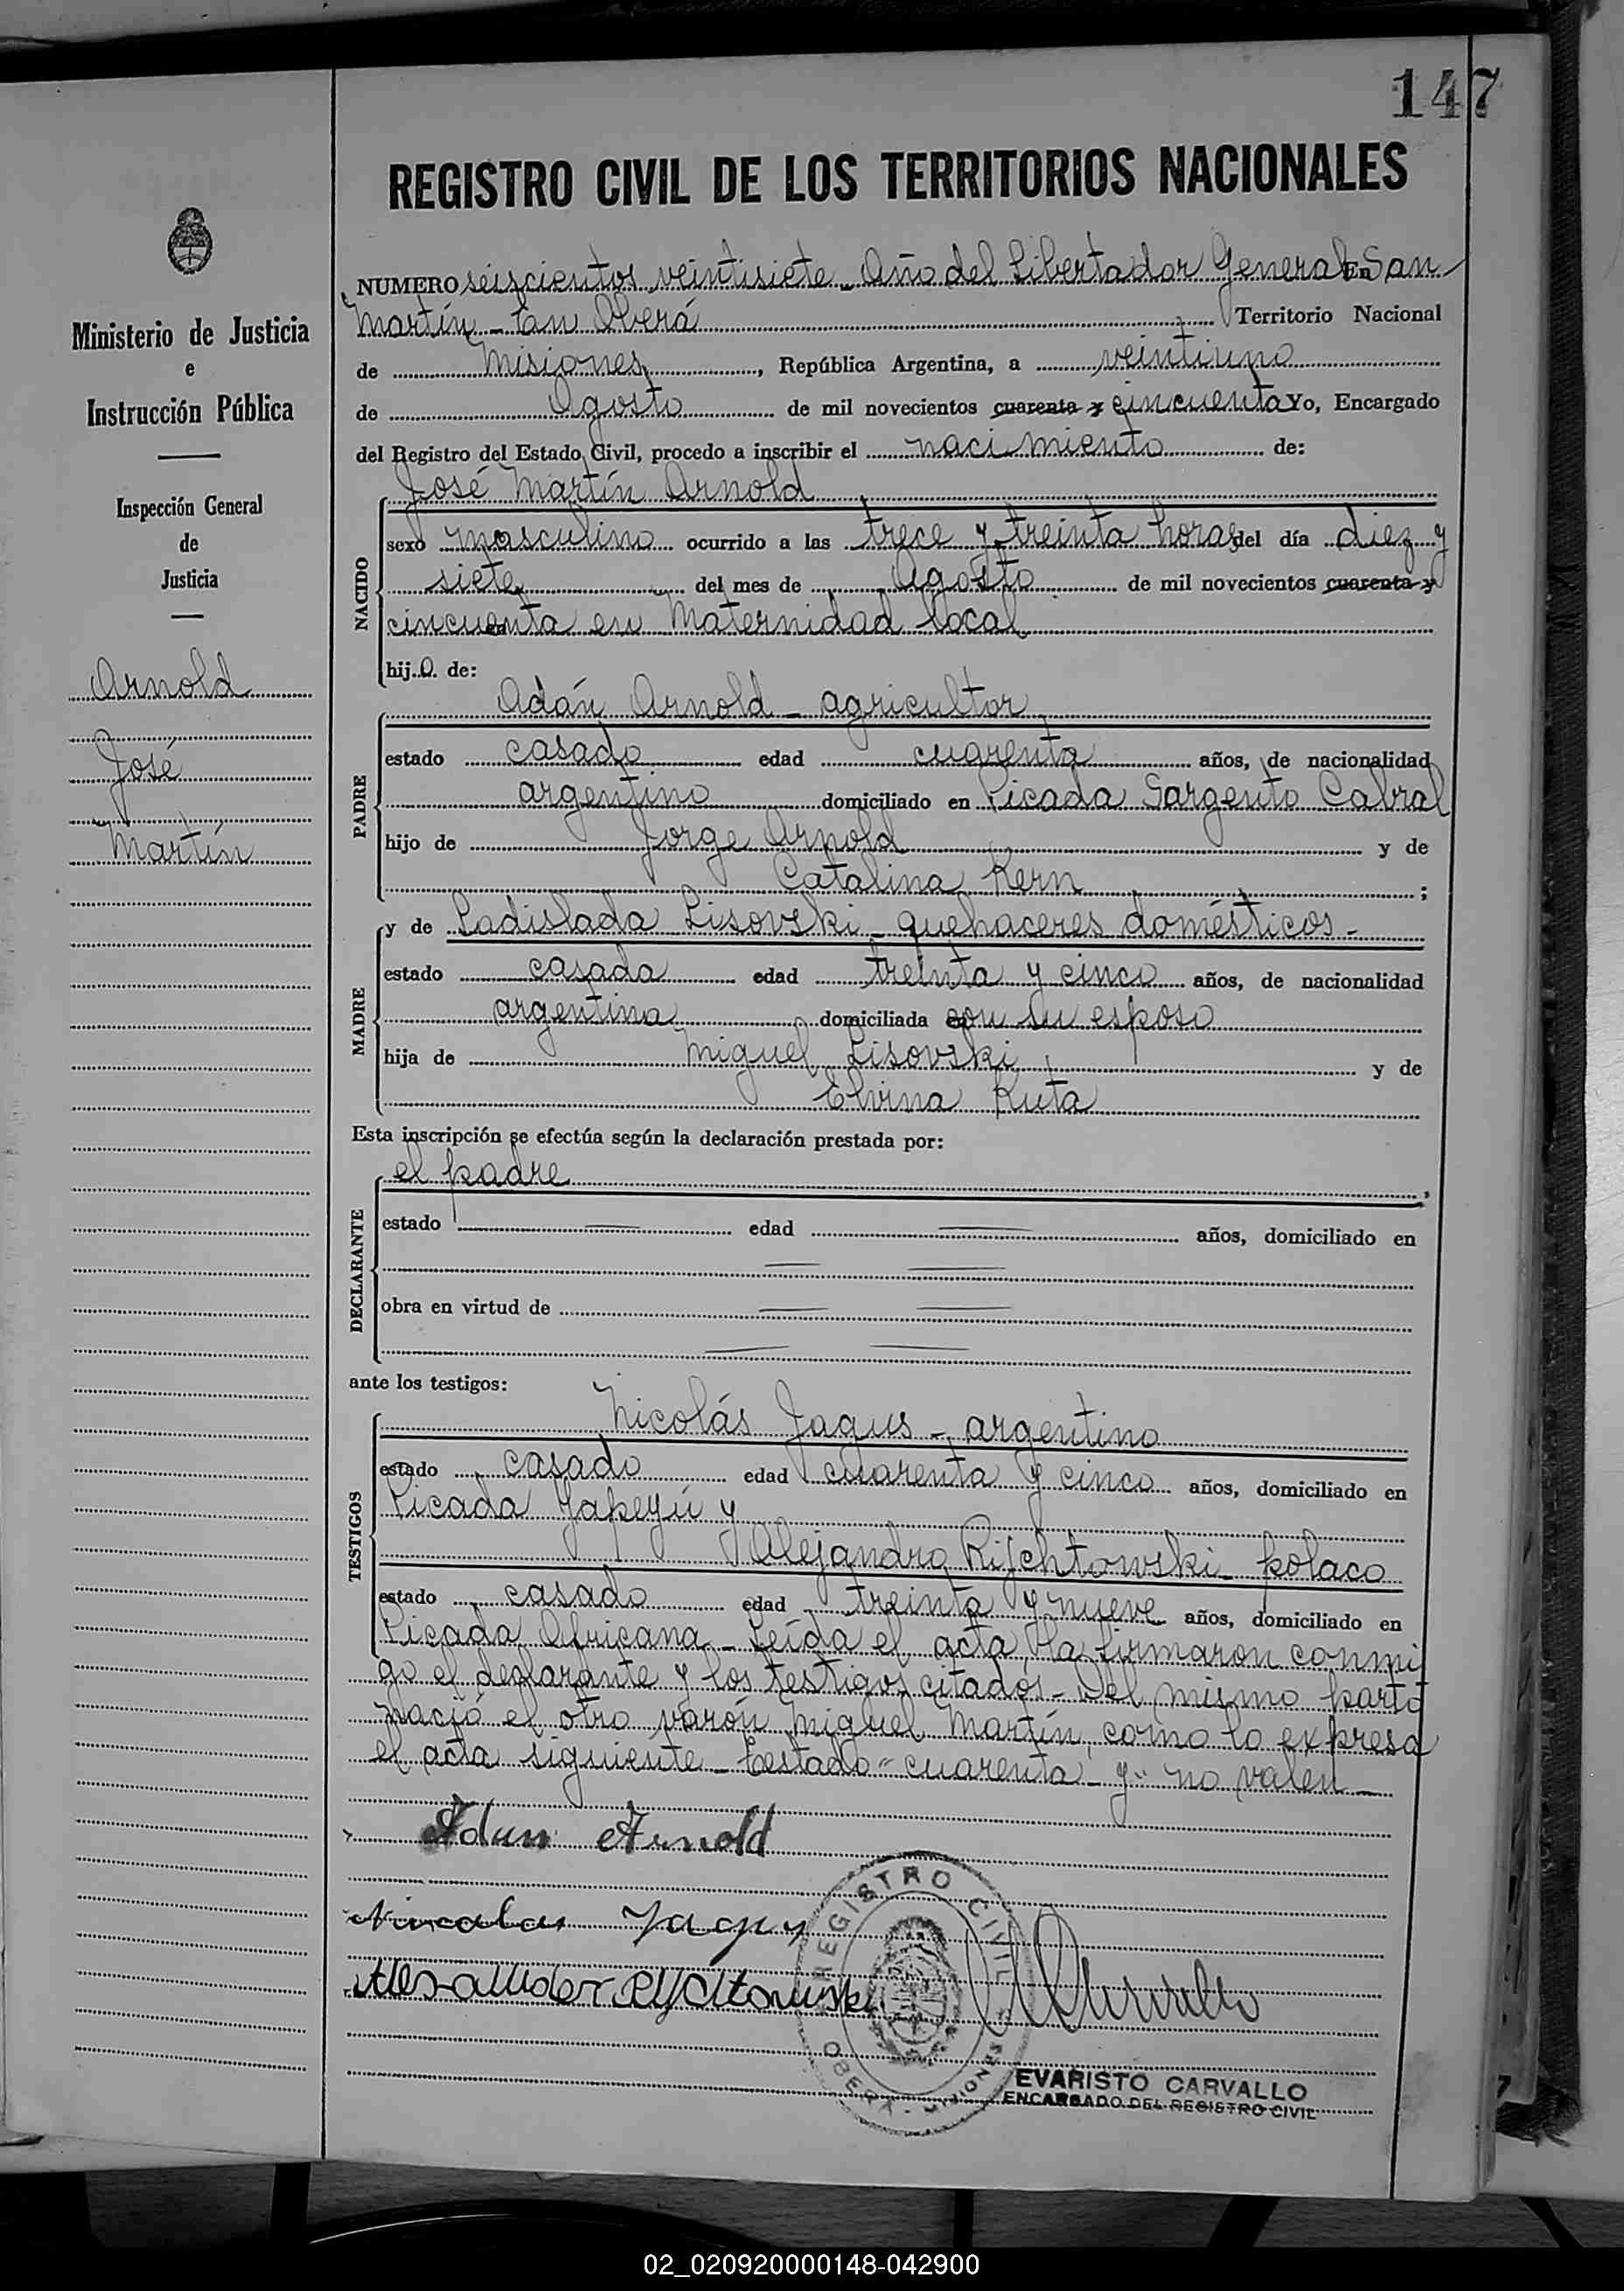 147
REGISTRO CIVIL DE LOS TERRITORIOS NACIONALES
Ministerio de Justicia
e
Instrucción Pública
Inspección General
de
Justicia
Arnold
José
Martín
NUMERO seiscientos veintisiete - Año del Libertador General En San
Martín - En Oberá Territorio Nacional
de Misiones, República Argentina, a veintiuno
de Agosto de mil novecientos cuarenta y cincuenta Yo, Encargado
del Registro del Estado Civil, procedo a inscribir el nacimiento de:
José Martín Arnold
NACIDO
sexo masculino ocurrido a las trece y treinta horas del día diez y
siete del mes de Agosto de mil novecientos cuarenta y
cincuenta en Maternidad local
hij.o. de:
Adán Arnold - agricultor
PADRE
estado casado edad cuarenta años, de nacionalidad
argentino domiciliado en Picada Sargento Cabral
hijo de Jorge Arnold y de
Catalina Kern ;
MADRE
y de Ladislada Lisovski - quehaceres domésticos -
estado casada edad treinta y cinco años, de nacionalidad
argentina domiciliada con su esposo
hija de Miguel Lisovski y de
Elvina Kuta
Esta inscripción se efectúa según la declaración prestada por:
el padre ,
DECLARANTE
estado edad años, domiciliado en
obra en virtud de
ante los testigos:
TESTIGOS
Nicolás Jagus - argentino
estado casado edad cuarenta y cinco años, domiciliado en
Picada Yapeyú y
Alejandro Rijchtowski - polaco
estado casado edad treinta y nueve años, domiciliado en
Picada Africana - Leída el acta, la firmaron conmi
go el declarante y los testigos citados - Del mismo parto
nació el otro varón Miguel Martín, como lo expresa
el acta siguiente - Testado "cuarenta - y" no valen
Adan Arnold
Nicolas Jagus
REGISTRO CIVIL
OBERA - MISIONES
EVARISTO CARVALLO
ENCARGADO DEL REGISTRO CIVIL
02_020920000148-042900